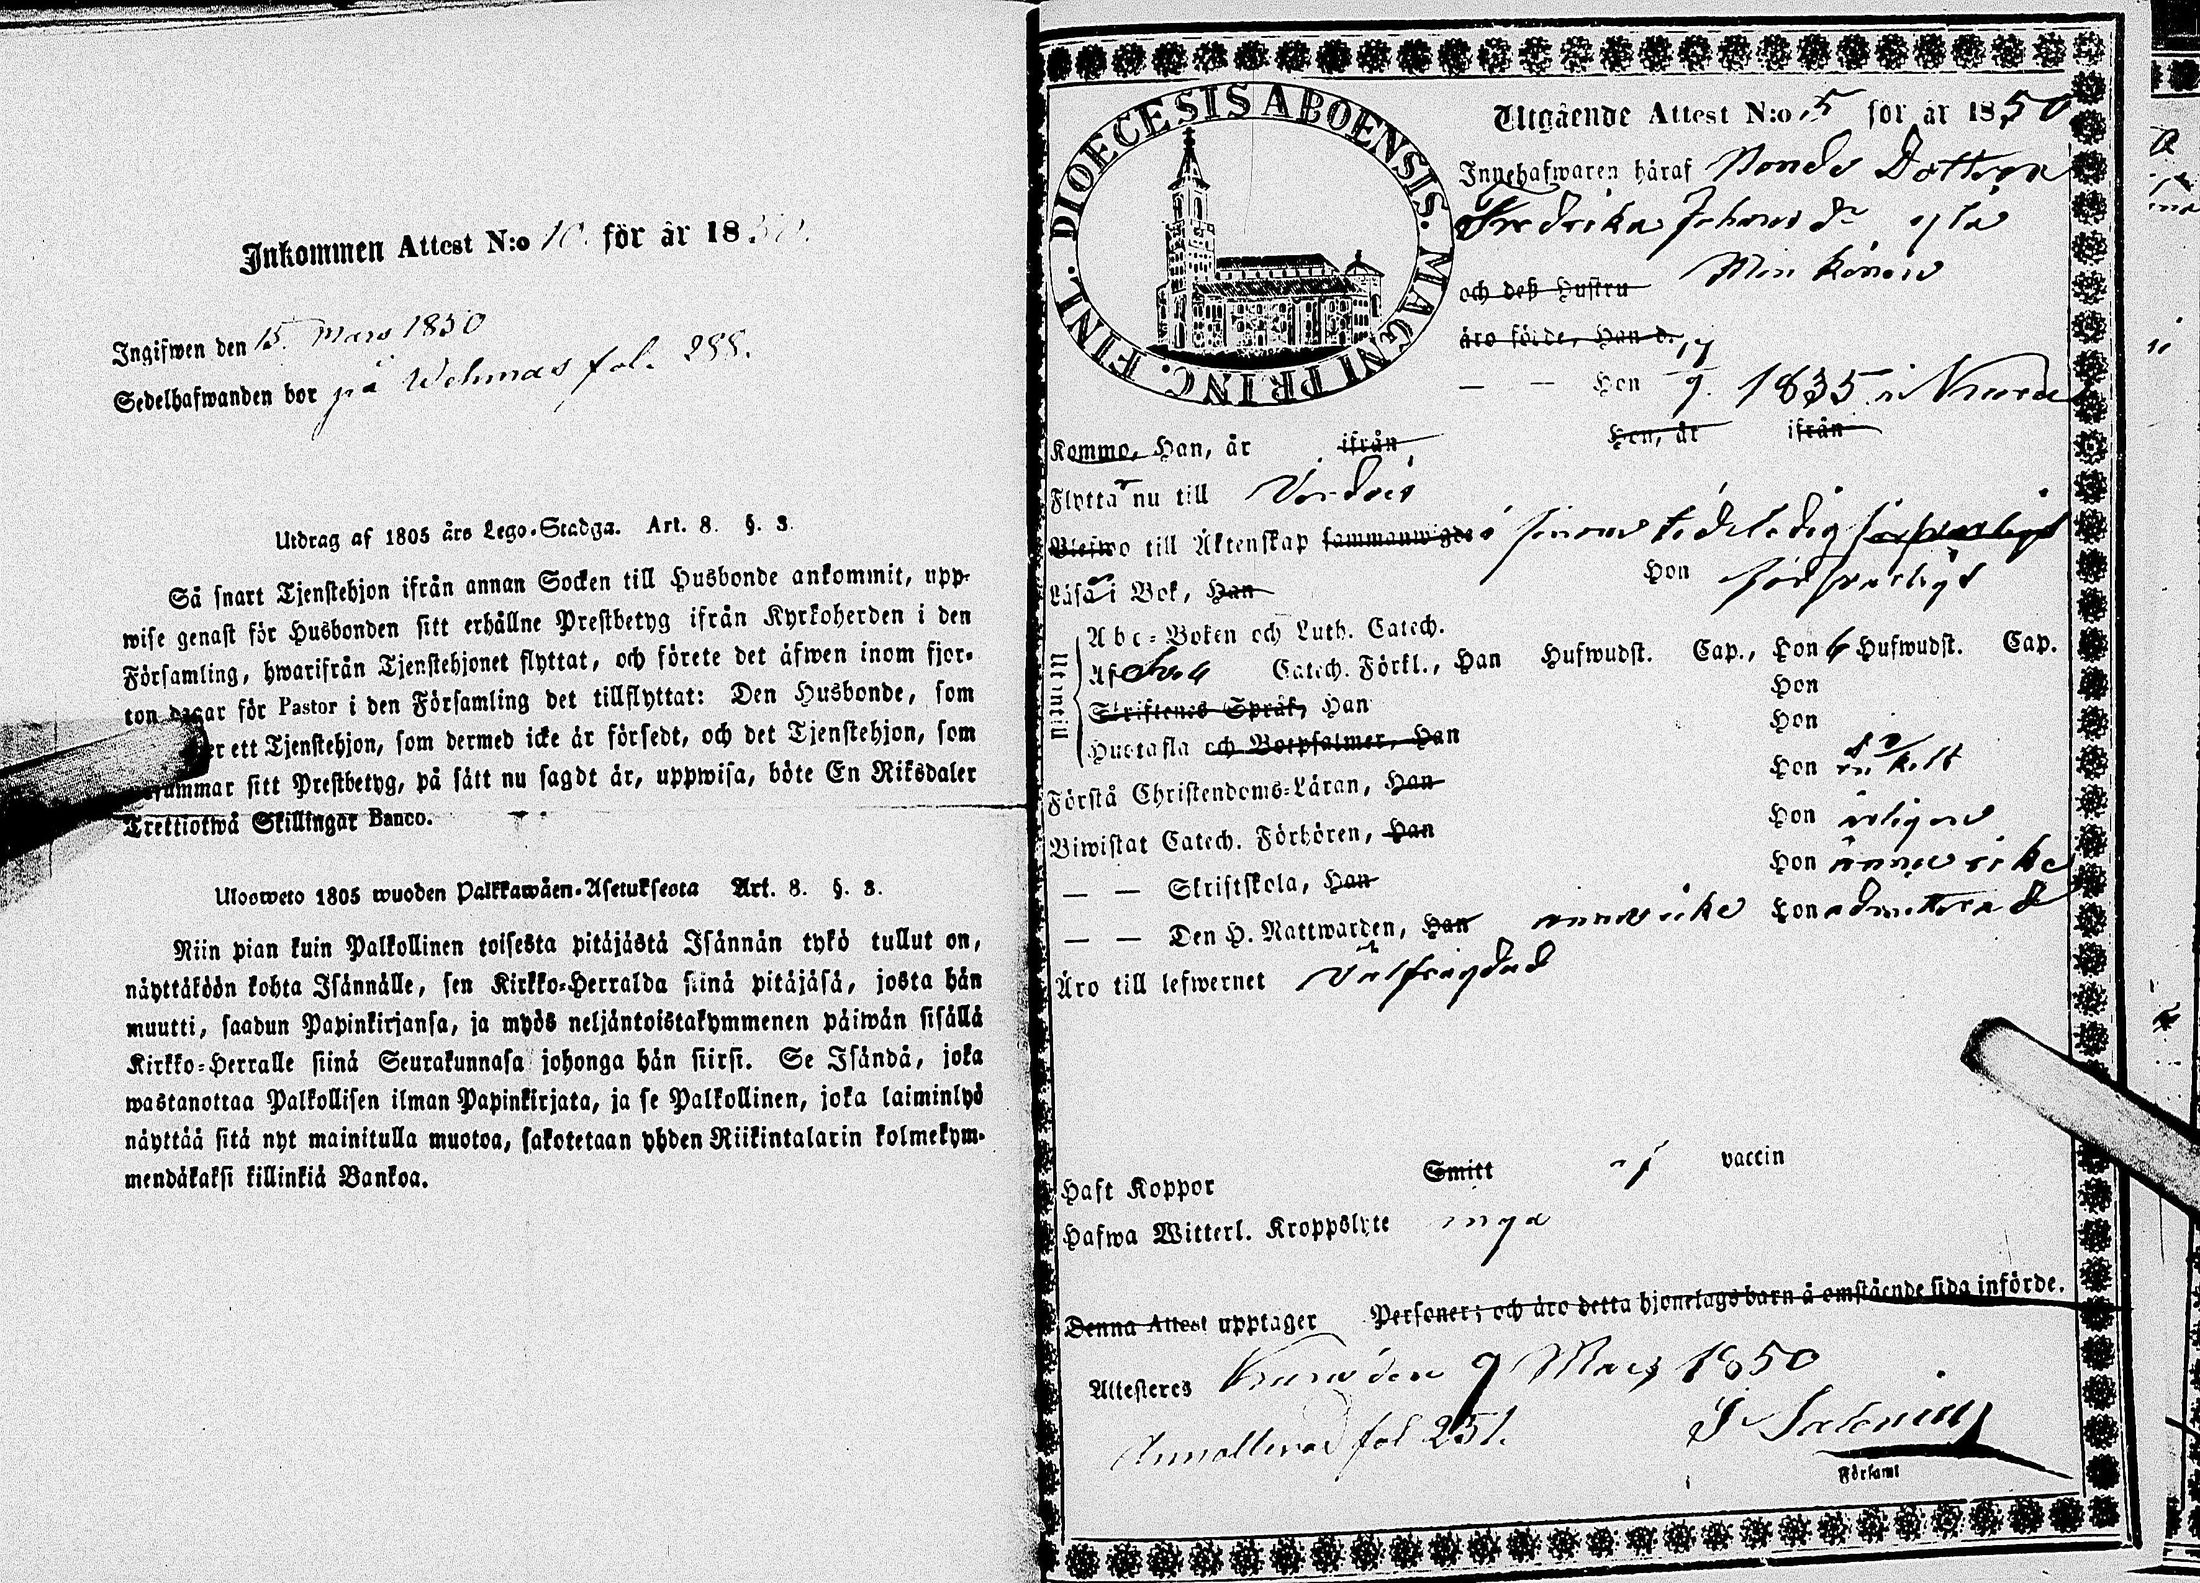 Inkommen Attest N:o 10. för år 1850.
Ingifwen den 15. Mars 1850
Sedelhafwanden bor på Wehmas fol. 288.
Utdrag af 1805 års Lego-Stadga. Art. 8. §. 3.
Så snart Tjenstehjon ifrån annan Socken till Husbonde ankommit, upp-
wise genast för Husbonden sitt erhållne Prestbetyg ifrån Kyrkoherden i den
Församling, hwarifrån Tjenstehjonet flyttat, och förete det äfwen inom fjor-
ton dagar för Pastor i den Församling det tillflyttat: Den Husbonde, som
ett Tjenstehjon, som dermed icke är försedt, och det Tjenstehjon, som
sitt Prestbetyg, på sätt nu sagdt är, uppwisa, böte En Riksdaler
Trettiotwå Skillingar Banco.
Ulosweto 1805 wuoden Palkkawäen-Asetuksesta Art. 8. §. 3.
Niin pian kuin Palkollinen toisesta pitäjästä Isännän tykö tullut on,
näyttäköön kohta Isännälle, sen Kirkko-Herralda siinä pitäjäsä, josta hän
muutti, saadun Papinkirjansa, ja myös neljäntoistakymmenen päiwän sisällä
Kirkko-Herralle siinä Seurakunnasa johonga hän siirsi. Se Isändä, joka
wastanottaa Palkollisen ilman Papinkirjata, ja se Palkollinen, joka laiminlyö
näyttää sitä nyt mainitulla muotoa, sakotetaan yhden Riikintalarin kolmekym-
mendäkaksi killinkiä Bankoa.
DIOECESIS ABOENSIS. MAGNI PRINC. FINL.
Utgående Attest N:o 5 för år 1850
Innehafwaren häraf Bonde Dottren
Fredrika Johans dr
och deß Hustru
äro födde, Han d. 17
— — Hon 9. 1835 i
Kommo, Han, år ifrån Hon, år ifrån
Flyttar nu till Vårdö
Blefwo till Äktenskap sammanwigde ledig
Läsa i Bok, Han Hon försvarligt
Utantill
Abc-Boken och Luth. Catech.
Af Catech. Förkl., Han Hufwudst. Cap., Hon 6 Hufwudst. Cap.
Skriftenes Språk, Han Hon
Hustafla och Botpsalmer, Han Hon
Förstå Christendoms-Läran, Han Hon enkelt
Biwistat Catech. Förhören, Han Hon årligen
— — Skriftskola, Han Hon ännu icke
— — Den H. Nattwarden, Han ännu icke Hon admitterad
Äro till lefwernet välfrägdad
Haft Koppor Smitt vaccin
Hafwa Witterl. Kroppslyte inga
Denna Attest upptager Personer; och äro detta hjonelags barn å omstående sida införde.
Attesteres den 9 Mars 1850
fol 251.
Församl